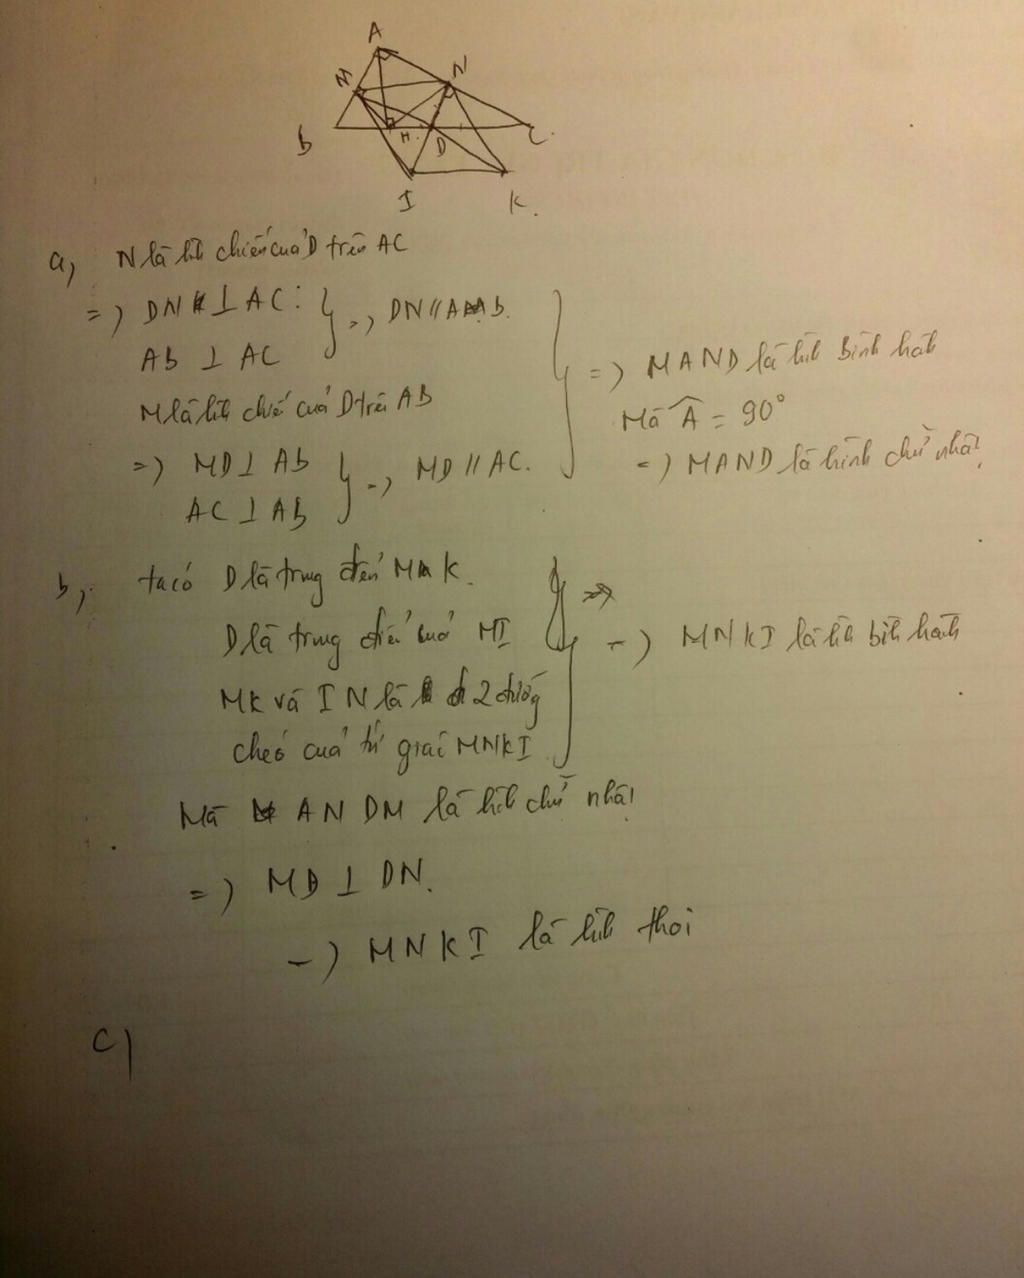 A
M
N
B
H
D
C
I
K.
a, N là hình chiếu của D trên AC
=> DN ⊥ AC
=> DN // AB.
AB ⊥ AC
M là hình chiếu của D trên AB
=> MD ⊥ AB
=> MD // AC.
AC ⊥ AB
=> MAND là hình bình hành
Mà Â = 90°
=> MAND là hình chữ nhật
b, ta có D là trung điểm MK.
D là trung điểm của MI
MK và IN là 2 đường
chéo của tứ giác MNKI
=> MNKI là hình bình hành
Mà ANDM là hình chữ nhật
=> MD ⊥ DN.
=> MNKI là hình thoi
c)